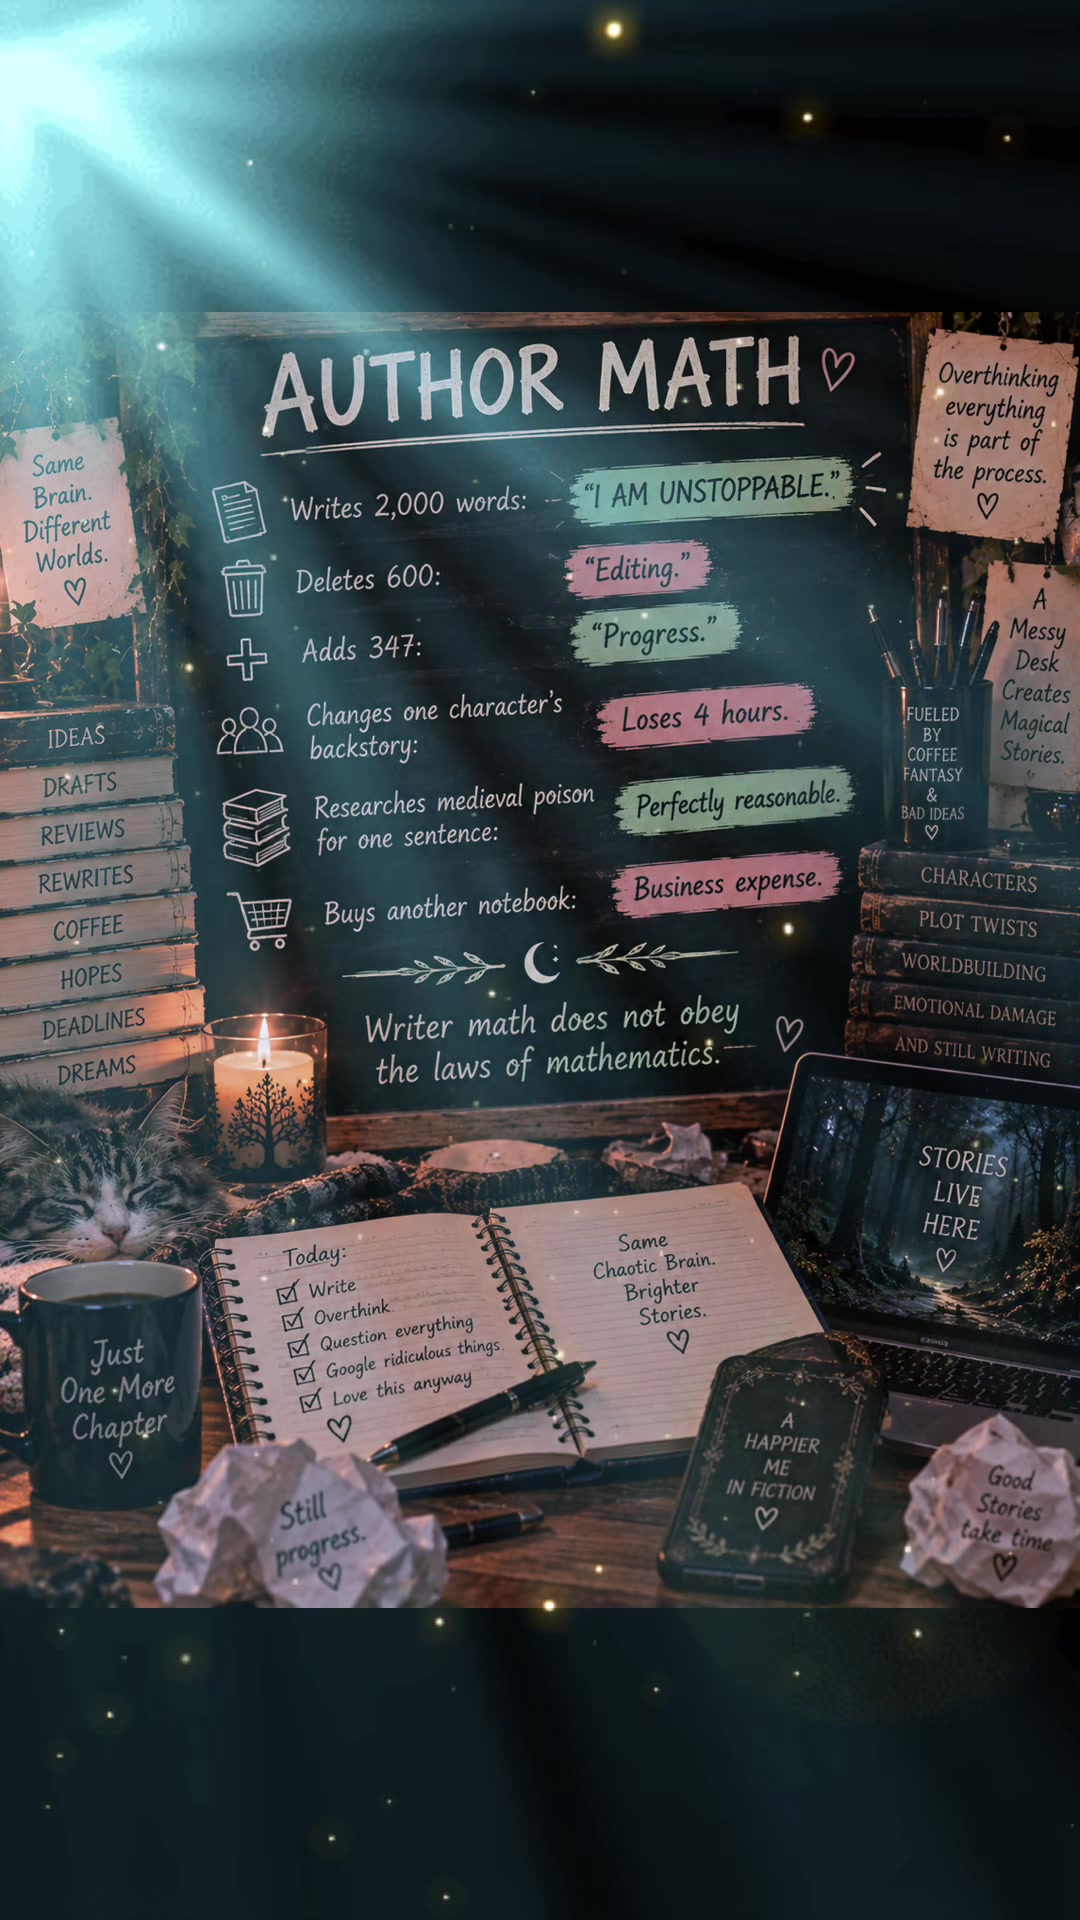 AUTHOR MATH
Writes 2,000 words:
“I AM UNSTOPPABLE.”
Deletes 600:
“Editing.”
Adds 347:
“Progress.”
Changes one character’s
backstory:
Loses 4 hours.
Researches medieval poison
for one sentence:
Perfectly reasonable.
Buys another notebook:
Business expense.
Writer math does not obey
the laws of mathematics.
Same
Brain.
Different
Worlds.
Overthinking
everything
is part of
the process.
A
Messy
Desk
Creates
Magical
Stories.
FUELED
BY
COFFEE
FANTASY
&
BAD IDEAS
IDEAS
DRAFTS
REVIEWS
REWRITES
COFFEE
HOPES
DEADLINES
DREAMS
CHARACTERS
PLOT TWISTS
WORLDBUILDING
EMOTIONAL DAMAGE
AND STILL WRITING
STORIES
LIVE
HERE
Today:
Write
Overthink
Question everything
Google ridiculous things
Love this anyway
Same
Chaotic Brain.
Brighter
Stories.
Just
One More
Chapter
Still
progress.
A
HAPPIER
ME
IN FICTION
Good
Stories
take time